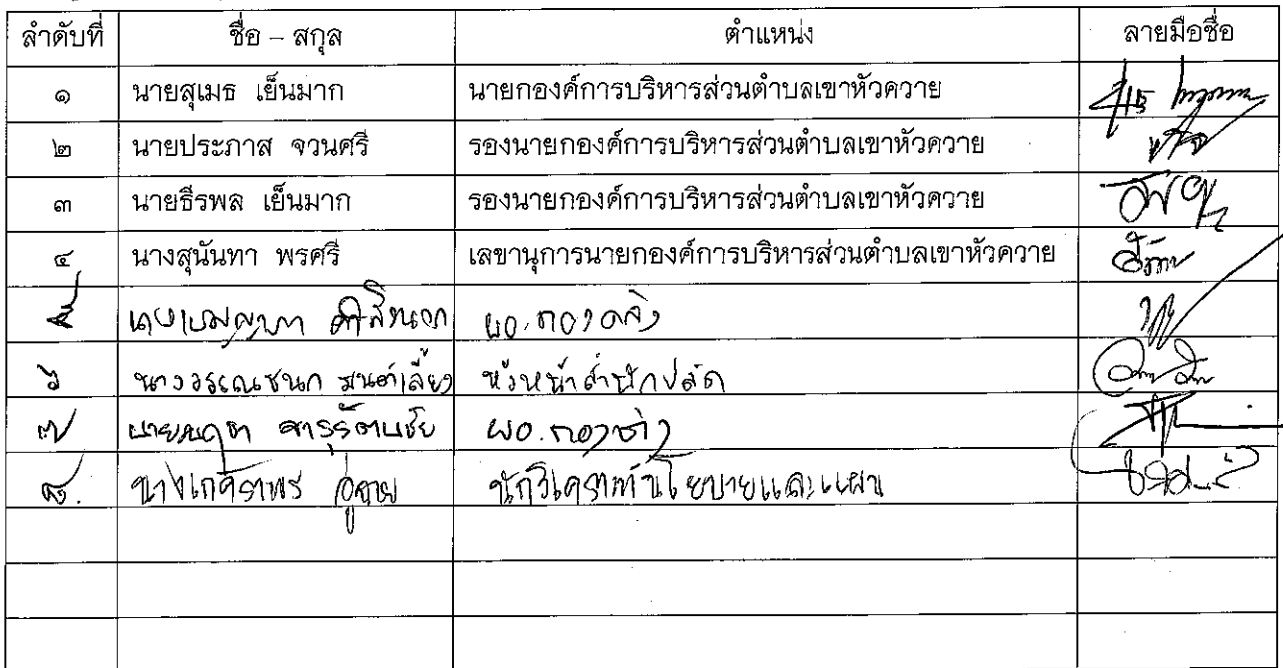 ลำดับที่ ชื่อ – สกุล ตำแหน่ง ลายมือชื่อ
๑ นายสุเมธ เย็นมาก นายกองค์การบริหารส่วนตำบลเขาหัวควาย
๒ นายประภาส จวนศรี รองนายกองค์การบริหารส่วนตำบลเขาหัวควาย
๓ นายธีรพล เย็นมาก รองนายกองค์การบริหารส่วนตำบลเขาหัวควาย
๔ นางสุนันทา พรศรี เลขานุการนายกองค์การบริหารส่วนตำบลเขาหัวควาย
๕ ผอ.กองคลัง
๖ นางวรรณชนก หัวหน้าสำนักปลัด
๗ ผอ.กองช่าง
๘. นักวิเคราะห์นโยบายและแผน